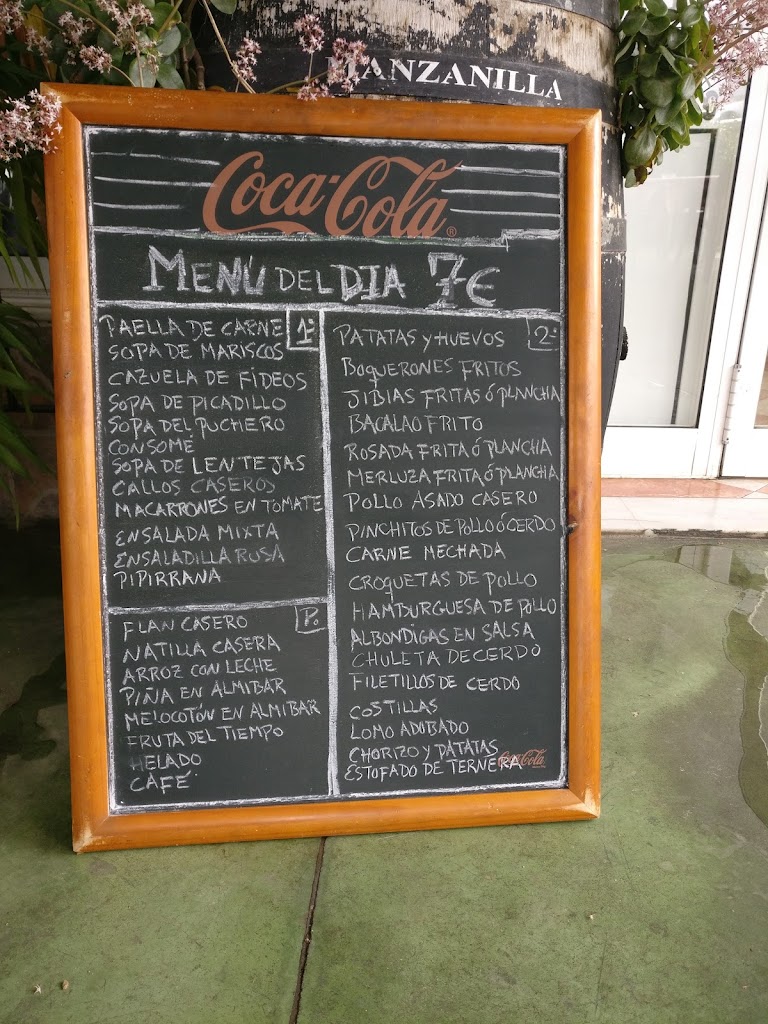 MANZANILLA
Coca-Cola®
MENÚ DEL DIA 7€
1º
PAELLA DE CARNE
SOPA DE MARISCOS
CAZUELA DE FIDEOS
SOPA DE PICADILLO
SOPA DEL PUCHERO
CONSOMÉ
SOPA DE LENTEJAS
CALLOS CASEROS
MACARRONES EN TOMATE
ENSALADA MIXTA
ENSALADILLA RUSA
PIPIRRANA
P.
FLAN CASERO
NATILLA CASERA
ARROZ CON LECHE
PIÑA EN ALMIBAR
MELOCOTÓN EN ALMIBAR
FRUTA DEL TIEMPO
HELADO
CAFÉ
2º
PATATAS Y HUEVOS
BOQUERONES FRITOS
JIBIAS FRITAS Ó PLANCHA
BACALAO FRITO
ROSADA FRITA Ó PLANCHA
MERLUZA FRITA Ó PLANCHA
POLLO ASADO CASERO
PINCHITOS DE POLLO Ó CERDO
CARNE MECHADA
CROQUETAS DE POLLO
HAMBURGUESA DE POLLO
ALBONDIGAS EN SALSA
CHULETA DE CERDO
FILETILLOS DE CERDO
COSTILLAS
LOMO ADOBADO
CHORIZO Y PATATAS
ESTOFADO DE TERNERA
Coca-Cola